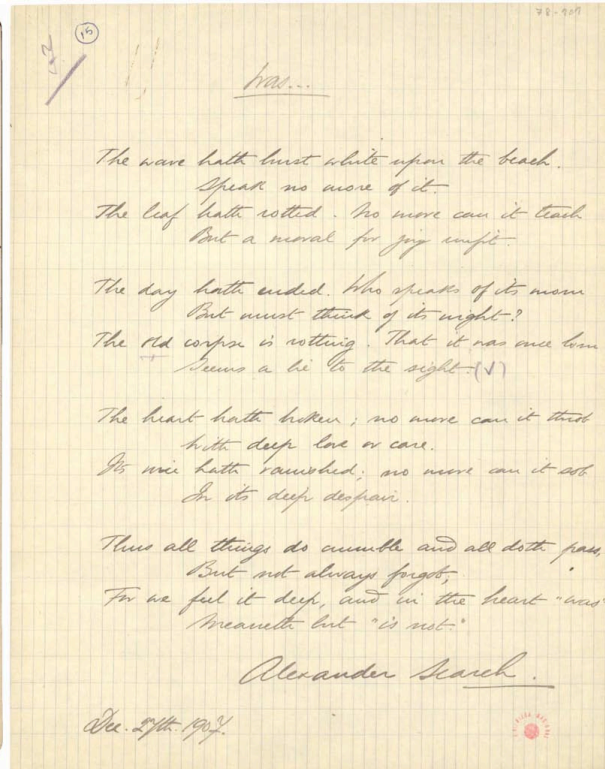 15
78-107
Was...
The wave hath burst white upon the beach.
Speak no more of it.
The leaf hath rotted. No more can it teach
But a moral for joy unfit.
The day hath ended. Who speaks of its morn
But must think of its night?
The old corpse is rotting. That it was once born
Seems a lie to the sight. (√)
The heart hath broken; no more can it throb
With deep love or care.
Its voice hath vanished; no more can it sob
In its deep despair.
Thus all things do crumble and all doth pass,
But not always forgot,
For we feel it deep, and in the heart "was"
Meaneth but "is not."
Alexander Search.
Dec. 27th. 1907.